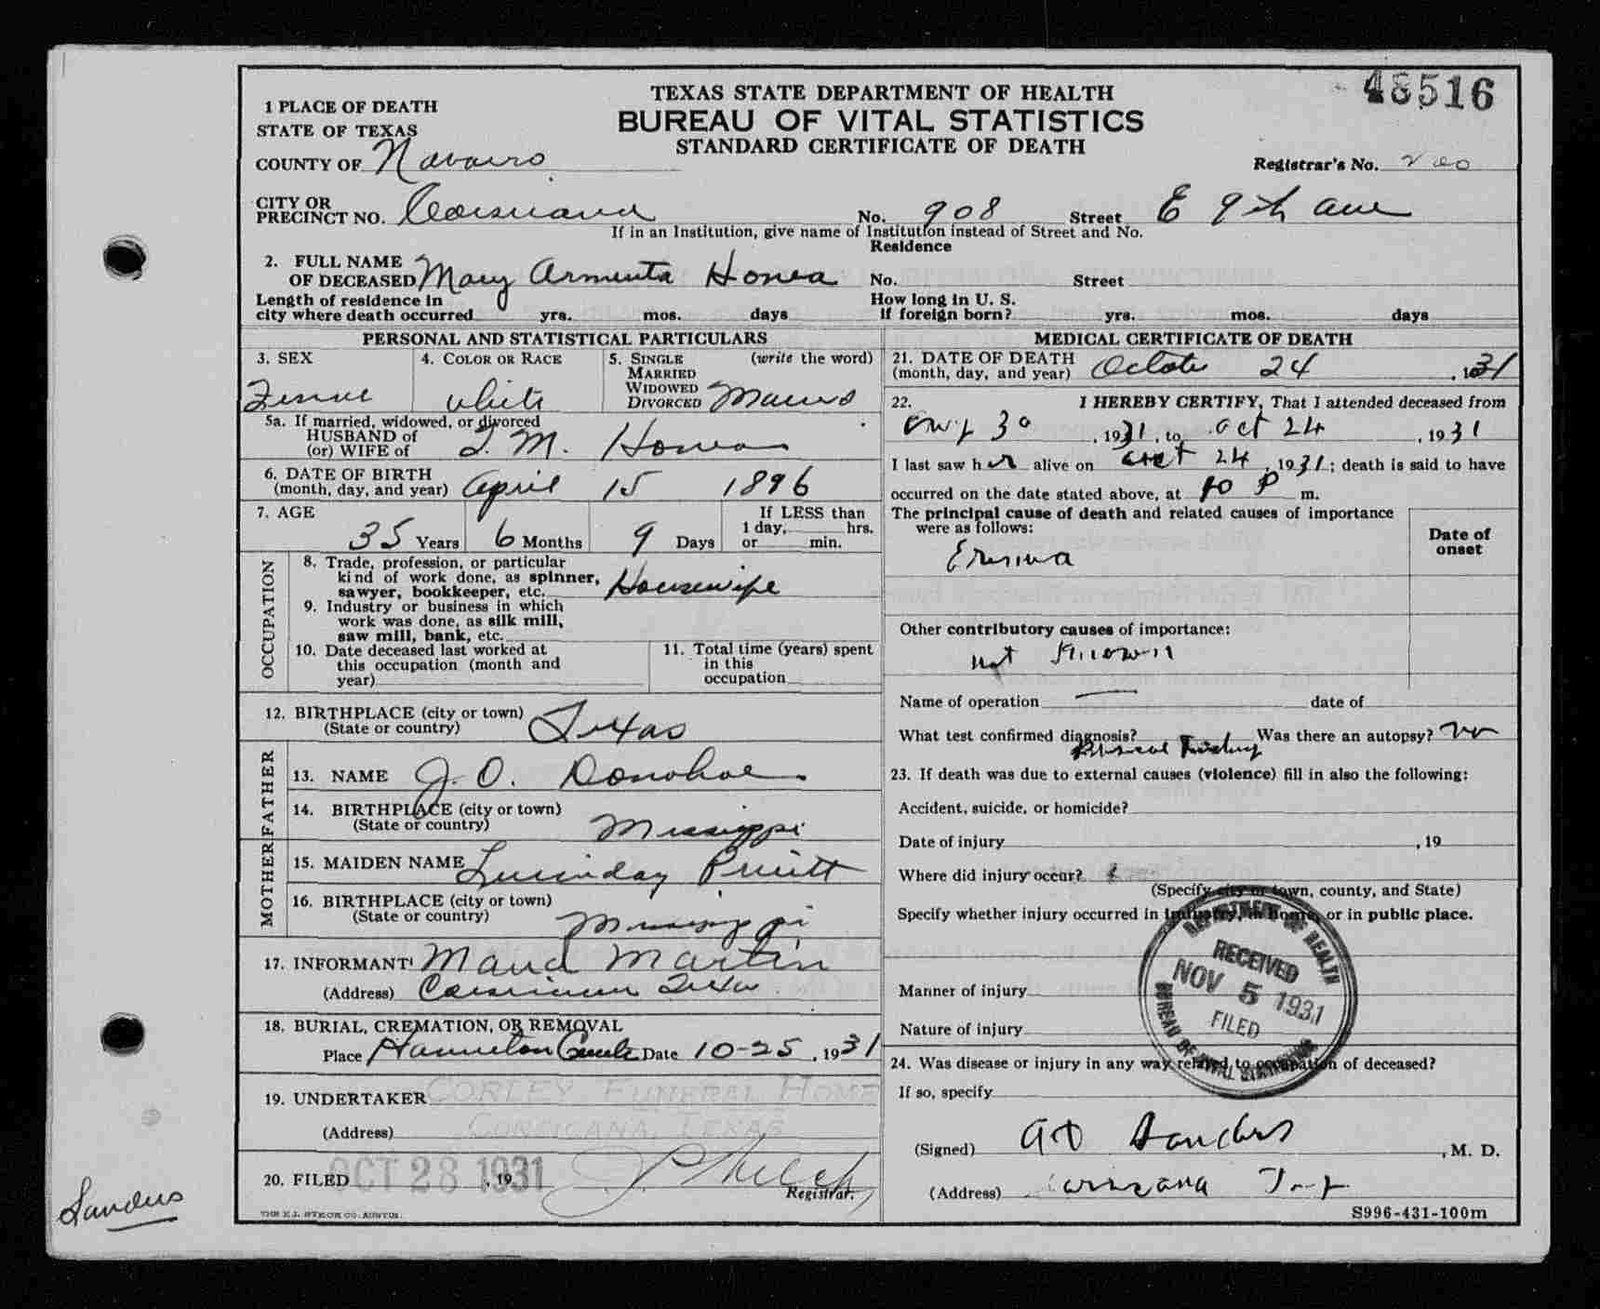 48516
TEXAS STATE DEPARTMENT OF HEALTH
BUREAU OF VITAL STATISTICS
STANDARD CERTIFICATE OF DEATH
1 PLACE OF DEATH
STATE OF TEXAS
COUNTY OF Navarro
Registrar's No. 200
CITY OR
PRECINCT NO. Corsicana No. 908 Street E 9th ave
If in an Institution, give name of Institution instead of Street and No.
Residence
2. FULL NAME
OF DECEASED Mary Armenta Honea No. Street
Length of residence in
city where death occurred yrs. mos. days
How long in U. S.
if foreign born? yrs. mos. days
PERSONAL AND STATISTICAL PARTICULARS
3. SEX
4. COLOR OR RACE white
5. SINGLE (write the word)
MARRIED
WIDOWED
DIVORCED
5a. If married, widowed, or divorced
HUSBAND of
(or) WIFE of M. Honea
6. DATE OF BIRTH
(month, day, and year) April 15 1896
7. AGE
35 Years 6 Months 9 Days
If LESS than
1 day, hrs.
or min.
OCCUPATION
8. Trade, profession, or particular
kind of work done, as spinner,
sawyer, bookkeeper, etc. Housewife
9. Industry or business in which
work was done, as silk mill,
saw mill, bank, etc.
10. Date deceased last worked at
this occupation (month and
year)
11. Total time (years) spent
in this
occupation
12. BIRTHPLACE (city or town)
(State or country) Texas
FATHER
13. NAME J. O. Donohoe
14. BIRTHPLACE (city or town)
(State or country) Mississippi
MOTHER
15. MAIDEN NAME Lucinday Pruitt
16. BIRTHPLACE (city or town)
(State or country) Mississippi
17. INFORMANT Maud Martin
(Address) Corsicana Texas
18. BURIAL, CREMATION, OR REMOVAL
Place Hamilton Date 10-25, 1931
19. UNDERTAKER CORLEY FUNERAL HOME
(Address) CORSICANA, TEXAS
20. FILED OCT 28 1931, 19
Registrar.
THE E.L. STECK CO. AUSTIN.
MEDICAL CERTIFICATE OF DEATH
21. DATE OF DEATH
(month, day, and year) 24, 1931
22. I HEREBY CERTIFY, That I attended deceased from
30, 1931, to Oct 24, 1931
I last saw her alive on Oct 24, 1931; death is said to have
occurred on the date stated above, at 10 P m.
The principal cause of death and related causes of importance
were as follows:
Date of
onset
Other contributory causes of importance:
not known
Name of operation date of
What test confirmed diagnosis? Was there an autopsy? no
23. If death was due to external causes (violence) fill in also the following:
Accident, suicide, or homicide?
Date of injury , 19
Where did injury occur?
(Specify city or town, county, and State)
Specify whether injury occurred in industry, in home, or in public place.
Manner of injury
Nature of injury
24. Was disease or injury in any way related to occupation of deceased?
If so, specify
(Signed) Sanders, M. D.
(Address) Corsicana Tex
S996-431-100m
DEPARTMENT OF HEALTH
RECEIVED
NOV 5 1931
FILED
BUREAU OF VITAL STATISTICS
Sanders